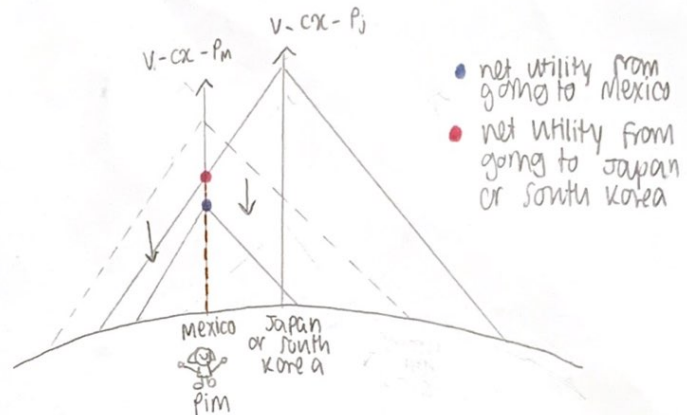 V-CX-PM
V-CX-Pj
net utility from
going to Mexico
net utility from
going to Japan
or South Korea
Mexico
Japan
or South
Korea
Pim